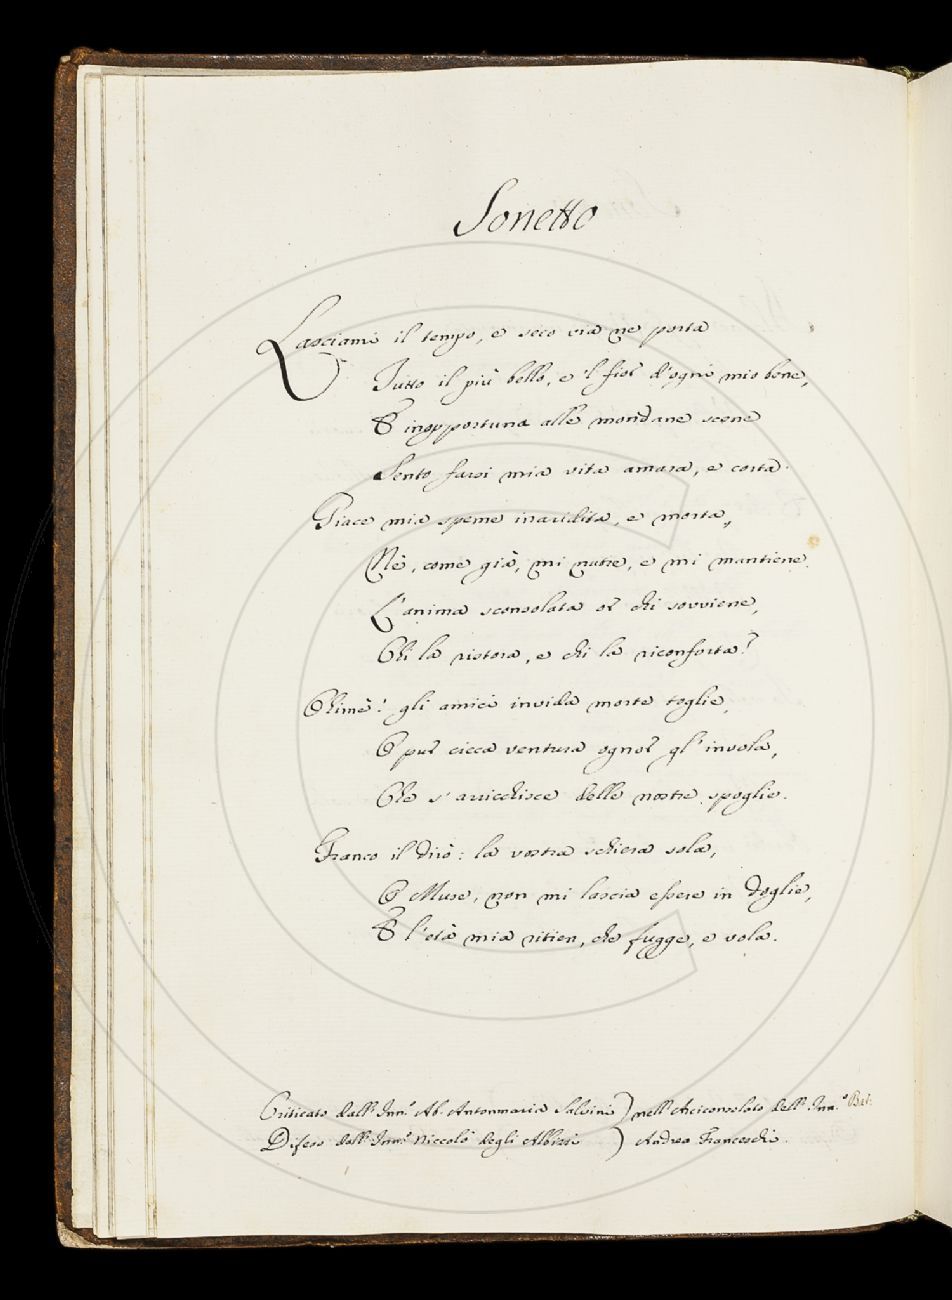 Sonetto
Lasciami il tempo, e seco via ne porta
Tutto il più bello, e 'l fior d'ogni mio bene,
E inopportuna alle mondane scene
Sento farsi mia vita amara, e corta.
Giace mia speme inaridita, e morta,
Nè, come già, mi nutre, e mi mantiene.
L'anima sconsolata or chi sovviene,
Chi la ristora, e chi la riconforta?
Ohimè! gli amici invida morte toglie,
O pur cieca ventura ognor gl' invola,
Che s' arricchisce delle nostre spoglie.
Franco il dirò: la vostra schiera sola,
O Muse, non mi lascia essere in doglie,
E l'età mia ritien, che fugge, e vola.
Criticato dall' Inn.° Ab. Antonmaria Salvini } nell' Arciconsolato dell' Inn.°
Difeso dall' Inn.° Niccolò degli Albizi } Andrea Franceschi.